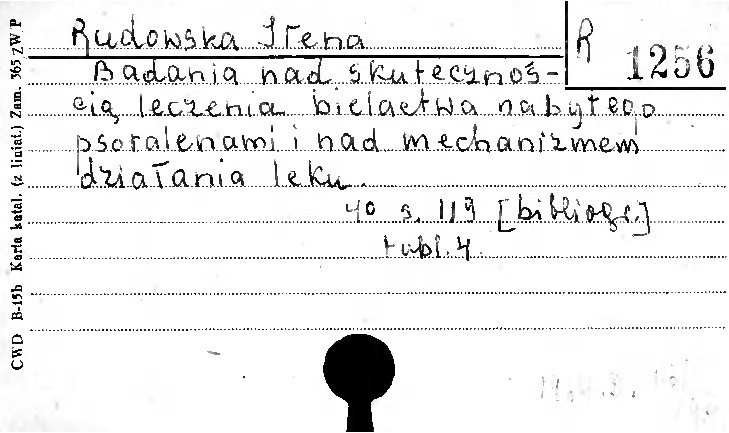 Rudowska Irena
R 1256
Badania nad skutecznoś-
cią leczenia bielactwa nabytego
psoralenami i nad mechanizmem
działania leku.
40 s. 119 [bibliogr.]
tabl. 4.
CWD B-15b Karta katal. (z liniat.) Zam. 365 ZWP